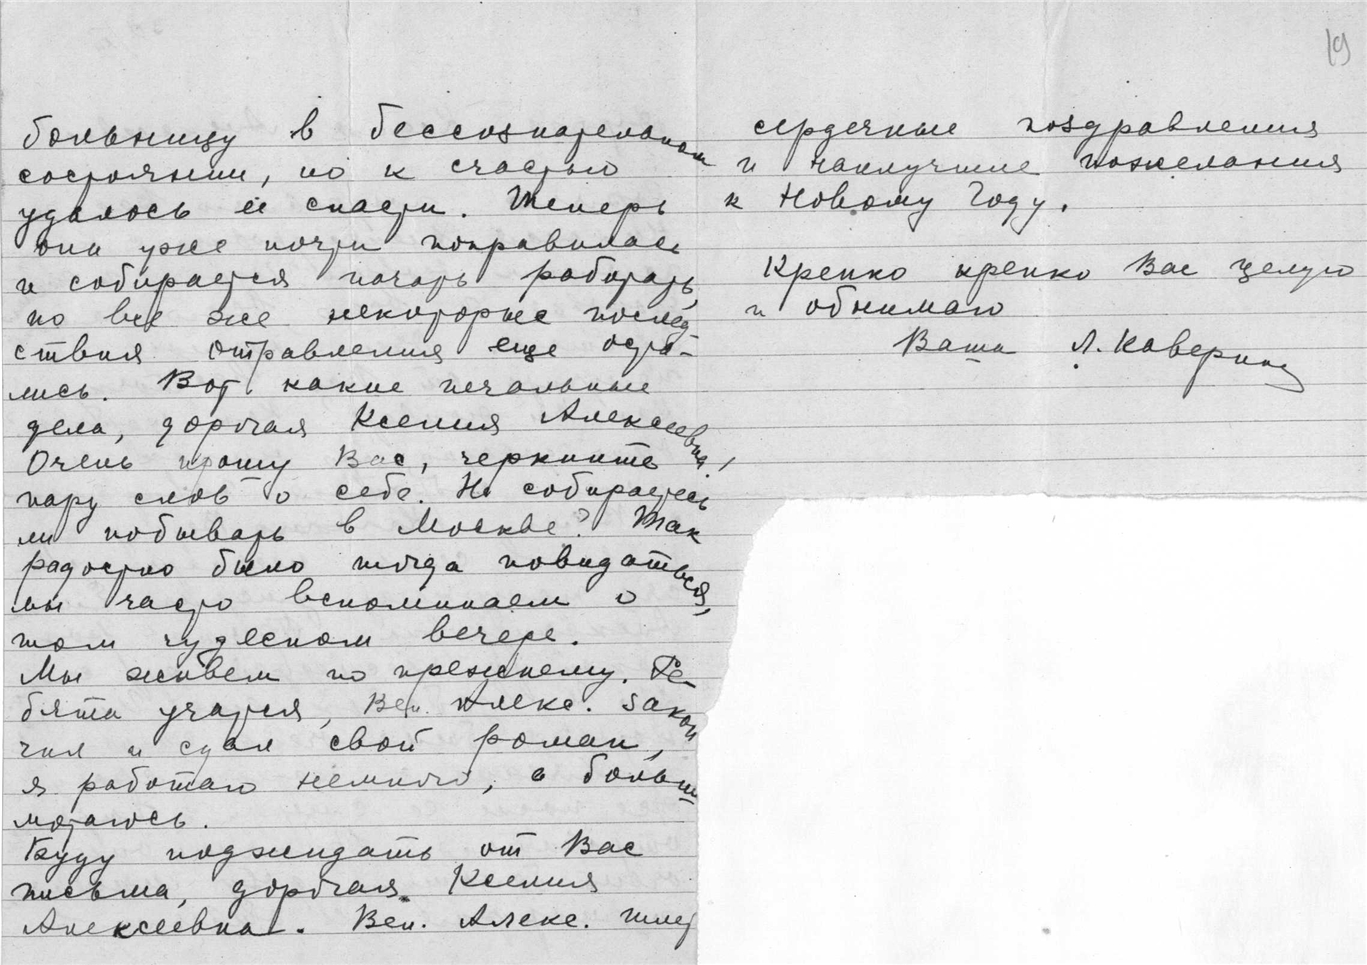 больницу в бессознательном
состоянии, но к счастью
удалось её спасти. Теперь
она уже почти поправилась
и собирается начать работать,
но все же некоторые послед
ствия отравления еще оста-
лись. Вот какие печальные
дела, дорогая Ксения Алексеевна!
Очень прошу Вас, черкните
пару слов о себе. Не собираетесь
ли побывать в Москве? Так
радостно было тогда повидаться,
мы часто вспоминаем о
том чудесном вечере.
Мы живем по прежнему. Ре
бята учатся, Вен. Алекс. закон
чил и сдал свой роман,
я работаю немного, а больше
мотаюсь.
Буду поджидать от Вас
письма, дорогая Ксения
Алексеевна. Вен. Алекс. шлет
19
сердечные поздравления
и наилучшие пожелания
к Новому Году.
Крепко крепко Вас целую
и обнимаю
Ваша Л. Каверина